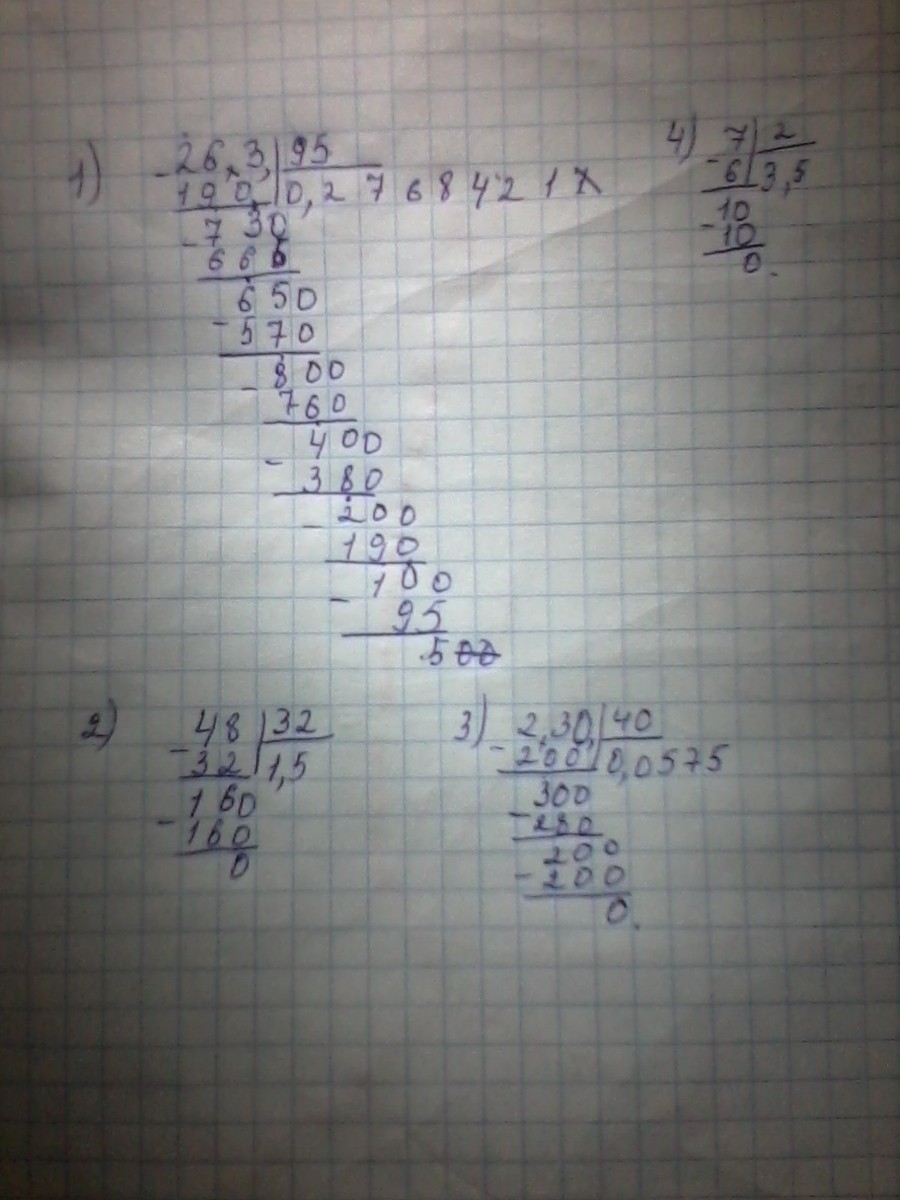 1) -26,3, | 95
190, | 0,2768421
-730
665
650
-570
-800
760
400
-380
-200
190
-100
95
500
2) -48 | 32
32 | 1,5
160
-160
0
3) -2,30, | 40
200 | 0,0575
300
-280
200
-200
0.
4) -7 | 2
6 | 3,5
-10
10
0.